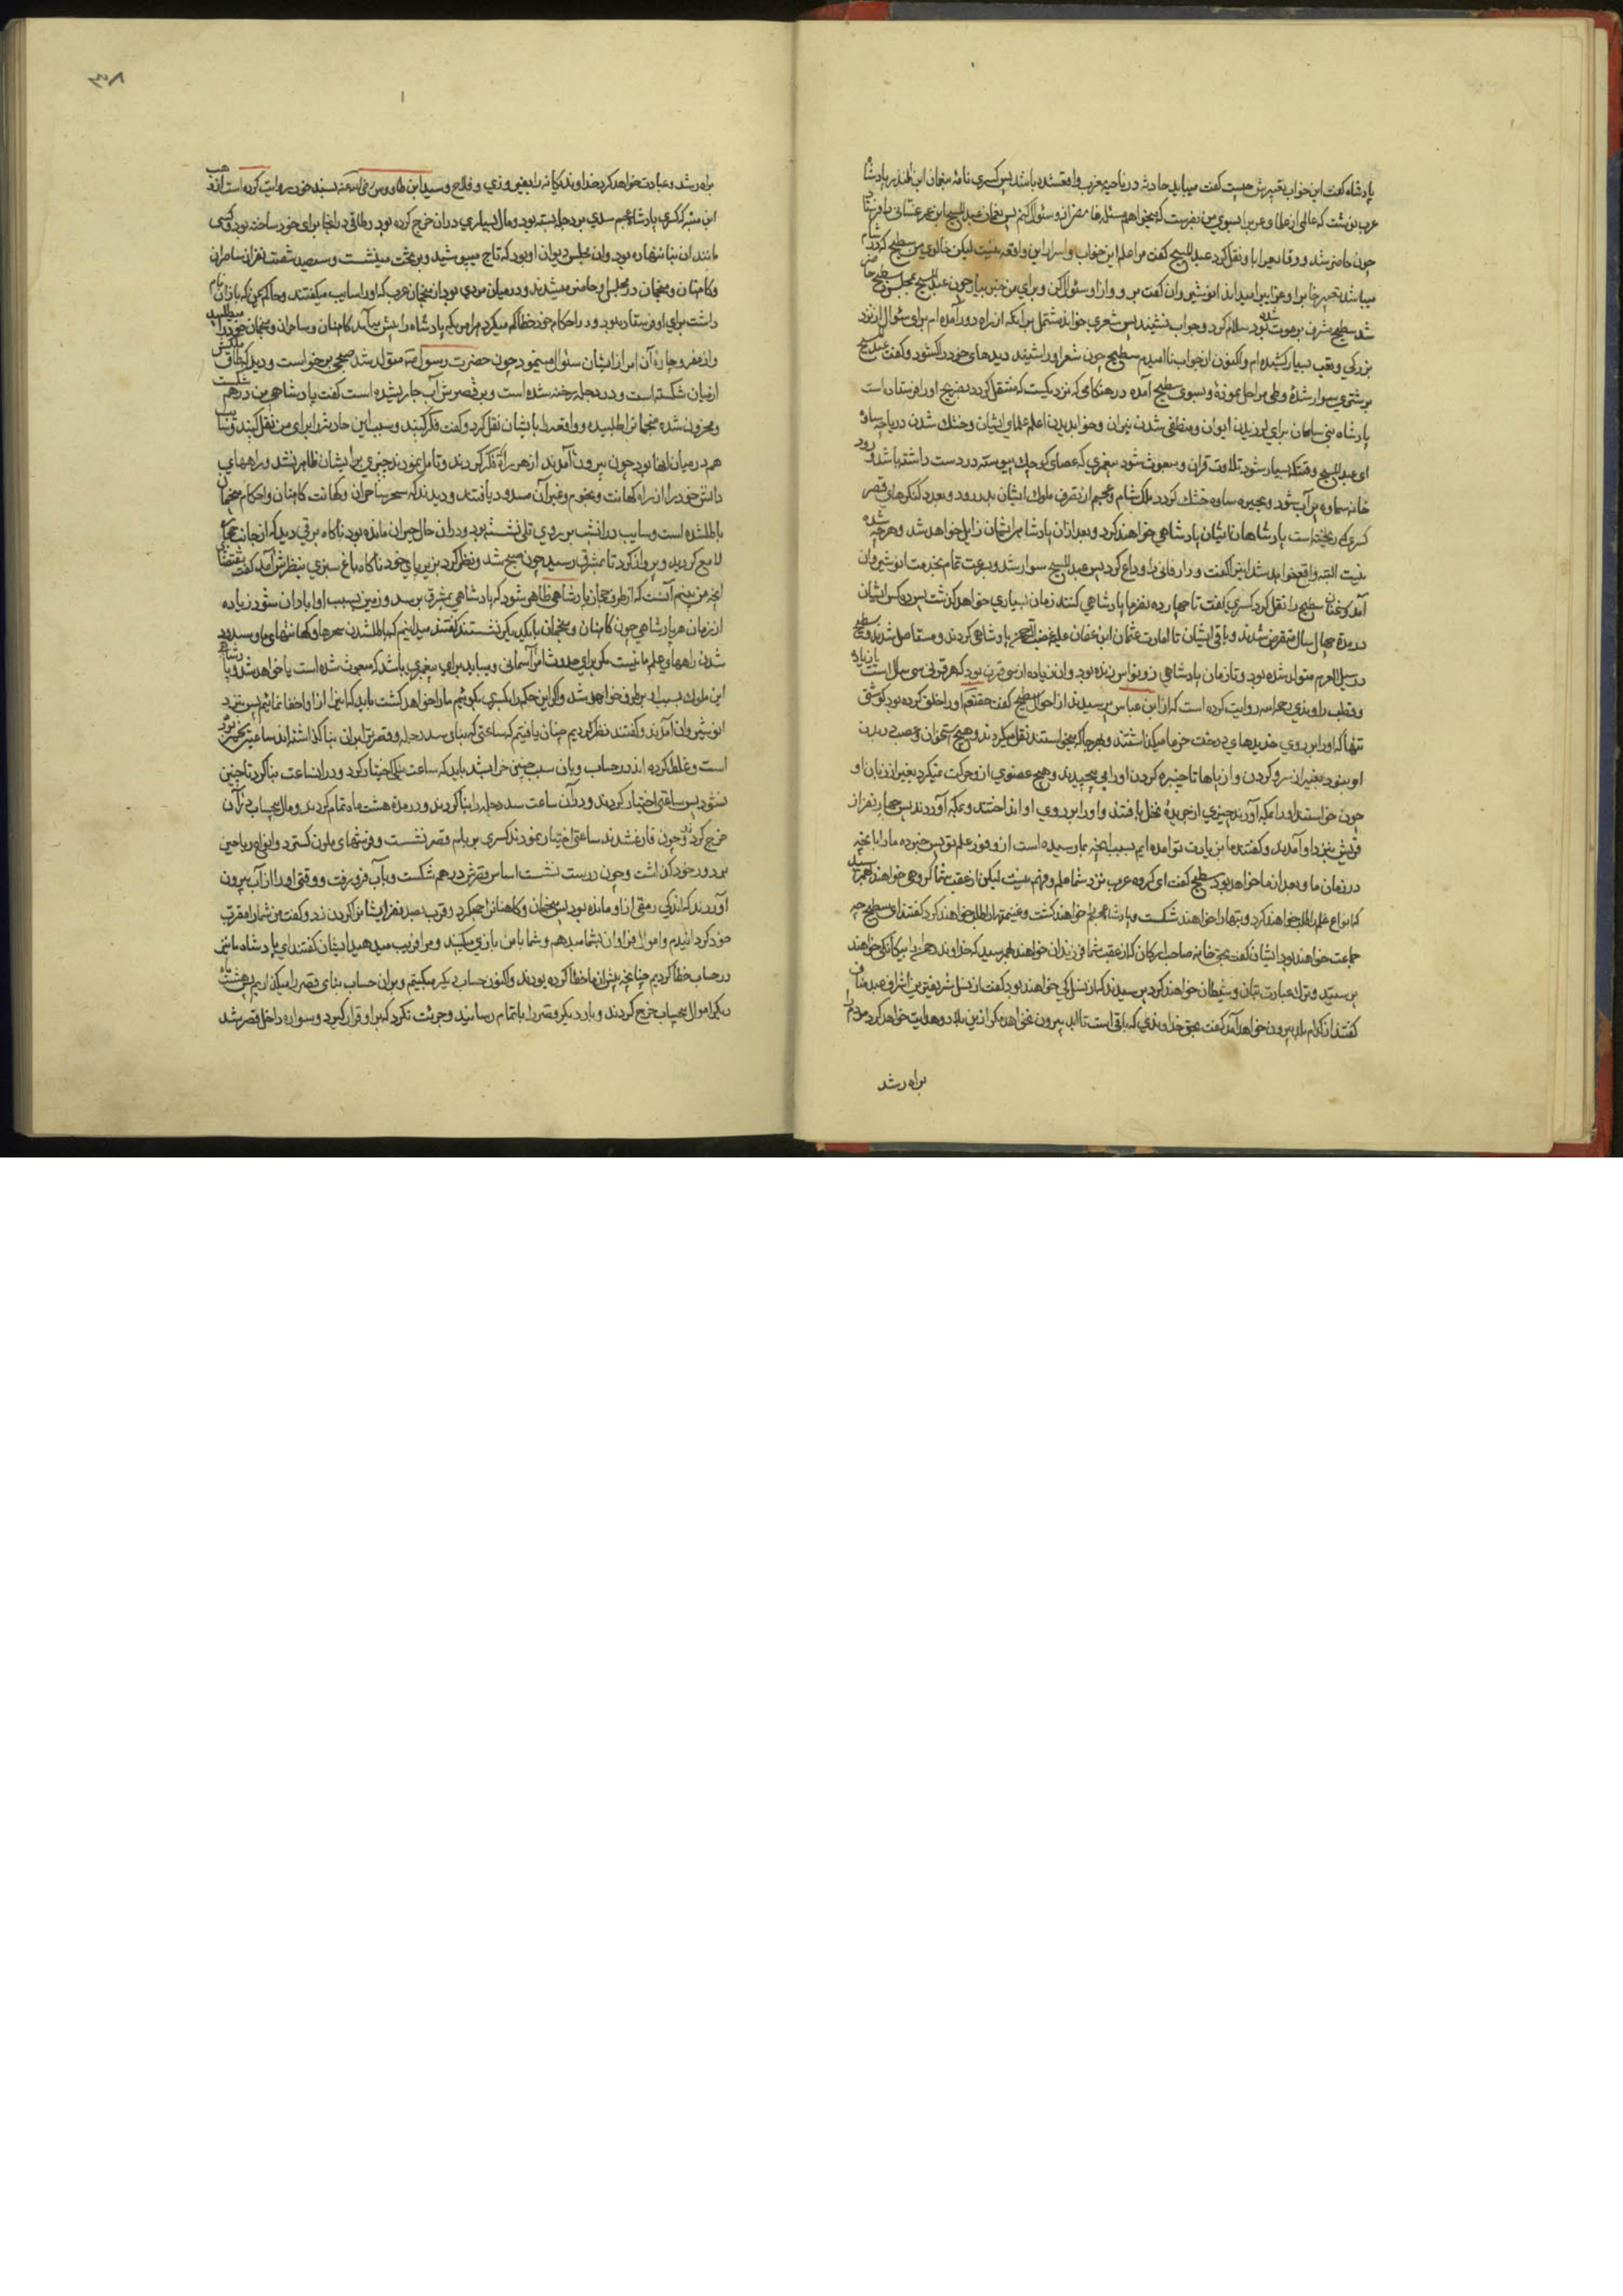 پادشاه گفت این خواب تعبیرش چیست گفت میباید حادثه در ناحیه عرب واقع شده باشد پس کسری نامه بنعمان ابن المنذر پادشاه
عرب نوشت که عالمی از علماء عرب را بسوی من بفرست که میخواهم مسئله غامضی از او سئوال کنم پس نعمان عبدالمسیح ابن عمر غسانی را فرستاد
چون حاضر شد و وقایع را باو نقل کرد عبدالمسیح گفت مرا علم این خواب و اسرار این واقعه نیست لیکن خالوی من سطیح که در شام
میباشد تعبیر خواب را میداند انوشیروان گفت برو و از او سئوال کن و برای من خبر بیار چون عبدالمسیح بمجلس سطیح حاضر
شد سطیح مشرف بر موت شده بود سلام کرد و جواب نشنید پس شعری خواند مشتمل بر آنکه از راه دور آمده ام برای سئوال از نزد
بزرگی و تعب بسیار کشیده ام و اکنون از جواب ناامیدم سطیح چون شعر او را شنید دیدهای خود را گشود و گفت عبدالمسیح
بر شتری سوار شده و طی مراحل نموده و بسوی سطیح آمده در هنگامی که نزدیکست که منتقل گردد بضریح او را فرستاده است
پادشاه بنی ساسان برای لرزیدن ایوان و منطفی شدن نیران و خواب دیدن اعلم علمای ایشان و خشک شدن دریاچه ساوه
ای عبدالمسیح وقتی که بسیار شود تلاوت قرآن و مبعوث شود پیغمبری که عصای کوچک پیوسته در دست داشته باشد و رود
خانه سماوه پر آب شود و بحیره ساوه خشک گردد ملک شام و عجم از تصرف ملوک ایشان بدر رود و بعدد کنگرهای قصر
کسری که ریخته است پادشاهان ایشان پادشاهی خواهند کرد و بعد از آن پادشاهی ایشان زایل خواهد شد و هرچه شدنی
است البته واقع خواهد شد این را گفت و دار فانی را وداع کرد پس عبدالمسیح سوار شد و بسرعت تمام بخدمت انوشیروان
آمد و سخنان سطیح را نقل کرد کسری گفت تا چهارده نفر ما پادشاهی کنند زمان بسیاری خواهد گذشت پس ده کس ایشان
در مدة چهار سال منقرض شدند و باقی ایشان تا امارت عثمان ابن عفان پادشاهی کردند و مستاصل شدند و سطیح
در سیل العرم متولد شده بود و تا زمان پادشاهی ذونواس زنده بود و آن زیاده از سی قرن بود که هر قرنی سی سال است یا زیاده
و قطب راوندی رحمه الله روایت کرده است که از ابن عباس پرسیدند از احوال سطیح گفت حقتعالی او را خلق کرده بود گوشتی
تنها که او را بر روی جریدهای درخت خرما میگذاشتند و بهر جا که میخواستند نقل میکردند و هیچ استخوان و عصب در بدن
او نبود بغیر از سر و گردن و از پاها تا چنبره گردن او را می پیچیدند و هیچ عضوی از او حرکت نمیکرد بغیر از زبان او
چون خواستند او را بمکه آورند چیزی از جریده نخل بافتند و او را بر روی او انداختند و بمکه آوردند پس چهار نفر از
قریش بنزد او آمدند و گفتند ما بزیارت تو آمده ایم بسبب آنچه بما رسیده است از وفور علم تو پس خبر ده ما را بآنچه
در زمان ما و بعد از ما خواهد بود سطیح گفت ای گروه عرب نزد شما علم و فهم نیست لیکن از عقب شما گروهی خواهند بهم رسید
که انواع علم را طلب خواهند کرد و بتها را خواهند شکست و عجم را خواهند کشت و غنیمتها را طلب خواهند کرد گفتند ای سطیح چه
جماعت خواهند بود ایشان گفت بحق خانه صاحب ارکان که از عقب شما فرزندان خواهند بهم رسید که خداوند رحمن را بیگانگی خواهند
پرستید و ترک عبادت بتان و شیطان خواهند کرد پرسیدند که از نسل کی خواهند بود گفت از نسل شریفترین اشراف عبد مناف
گفتند از کدام بلد بیرون خواهد آمد گفت بحق خداوندی که باقی است تا ابد بیرون نخواهد آمد مگر از این بلد و هدایت خواهد کرد مردم را
براه رشد
۳۸
براه رشد و عبادت خواهد کرد خداوند یگانه را و سید ابن طاووس رضی الله عنه بسند خود روایت کرده است از وهب
ابن منبه که کسری پادشاه عجم سدی بر دجله بسته بود و مال بسیاری در آن خرج کرده بود و طاقی در آنجا برای خود ساخته بود که کسی
مانند آن بنا ننهاده بود و آن مجلس دیوان او بود که تاج میپوشید و بر تخت مینشست و سیصد و شصت نفر از ساحران
و کاهنان و منجمان در مجلس او حاضر میشدند و در میان مردی بود از منجمان عرب که او را سایب میگفتند و حاکم یمن که باذان نام
داشت برای او فرستاده بود و در احکام خود خطا کم میکرد هر امری که پادشاه را پیش میآمد کاهنان و ساحران و منجمان خود را میطلبید
و از مفر و چاره آن امر از ایشان سئوال مینمود چون حضرت رسول ص متولد شد صبحی برخواست و دید که طاق ملکش
از میان شکسته است و در دجله رخنه شده است و بر قصرش آب جاری شده است گفت پادشاهی من درهم شکست
و محزون شده منجمان را طلبید و واقعه را بایشان نقل کرد و گفت فکر کنید و سبب این حادثه را برای من نقل کنید و سایب
هم در میان آنها بود چون بیرون آمدند از هر راه فکر کردند و تامل نمودند چیزی بر ایشان ظاهر نشد و راههای
دانش خود را از راه کهانت و نجوم و غیر آن مسدود یافتند و دیدند که سحر ساحران و کهانت کاهنان و احکام منجمان
باطل شده است و سایب در آنشب بر روی تلی نشسته بود و در آن حال حیران مانده بود ناگاه برقی دید که از جانب حجاز
لامع گردید و پرواز کرد تا بمشرق رسید چون صبح شد و نظر کرد بزیر پای خود ناگاه باغ سبزی بنظرش آمد گفت
آنچه من میبینم آنست که از طرف حجاز پادشاهی ظاهر شود که پادشاهی بمشرق برسد و زمین بسبب او آبادان شود زیاده
از زمان هر پادشاهی چون کاهنان و منجمان با یکدیگر نشستند گفتند میدانیم که باطل شدن سحرها و کهانتهای ما و مسدود
شدن راههای علم ما نیست مگر برای حدوث امر آسمانی و میباید برای پیغمبری باشد که مبعوث شده است یا خواهد شد و پادشاهی
این ملوک بسبب او برطرف خواهد شد و اگر این حکم را بکسری بگوئیم ما را خواهد کشت باید که این را از او اخفا نمائیم پس بنزد
انوشیروان آمدند و گفتند نظر کردیم چنان یافتیم که ساعتی که بنای سد دجله و قصر تو را بر آن بنا گذاشته اند ساعت نحس بوده
است و غلط کرده اند در حساب و بآن سبب چنین خراب شد باید که ساعت نیکی اختیار کرد و در آن ساعت بنا کرد تا چنین
نشود پس ساعتی اختیار کردند و در آن ساعت سد دجله را بنا کردند و در مدة هشت ماه تمام کردند و مال بیحساب در آن
خرج کرد و چون فارغ شدند ساعتی اختیار نمودند کسری بر بام قصر نشست و فرشهای ملون گسترد و انواع ریاحین
بر دور خود گذاشت و چون درست نشست اساس قصرش درهم شکست و بآب فرو رفت و وقتی او را از آب بیرون
آوردند که اندک رمقی از او مانده بود پس منجمان و کاهنان را جمع کرد و قریب بصد نفر ایشان را گردن زد و گفت من شما را مقرب
خود گردانیدم و اموال فراوان بشما میدهم و شما با من بازی میکنید و مرا فریب میدهید ایشان گفتند ای پادشاه ما نیز
در حساب خطا کردیم چنانچه پیش از ما خطا کرده بودند و اکنون حساب دیگر میکنیم و بر آن حساب بنای قصر را میگذاریم پس هشت ماه
دیگر اموال بیحساب خرج کردند و بار دیگر قصر را باتمام رسانیدند و جرئت نکرد که بر او قرار گیرد و سواره داخل قصر شد